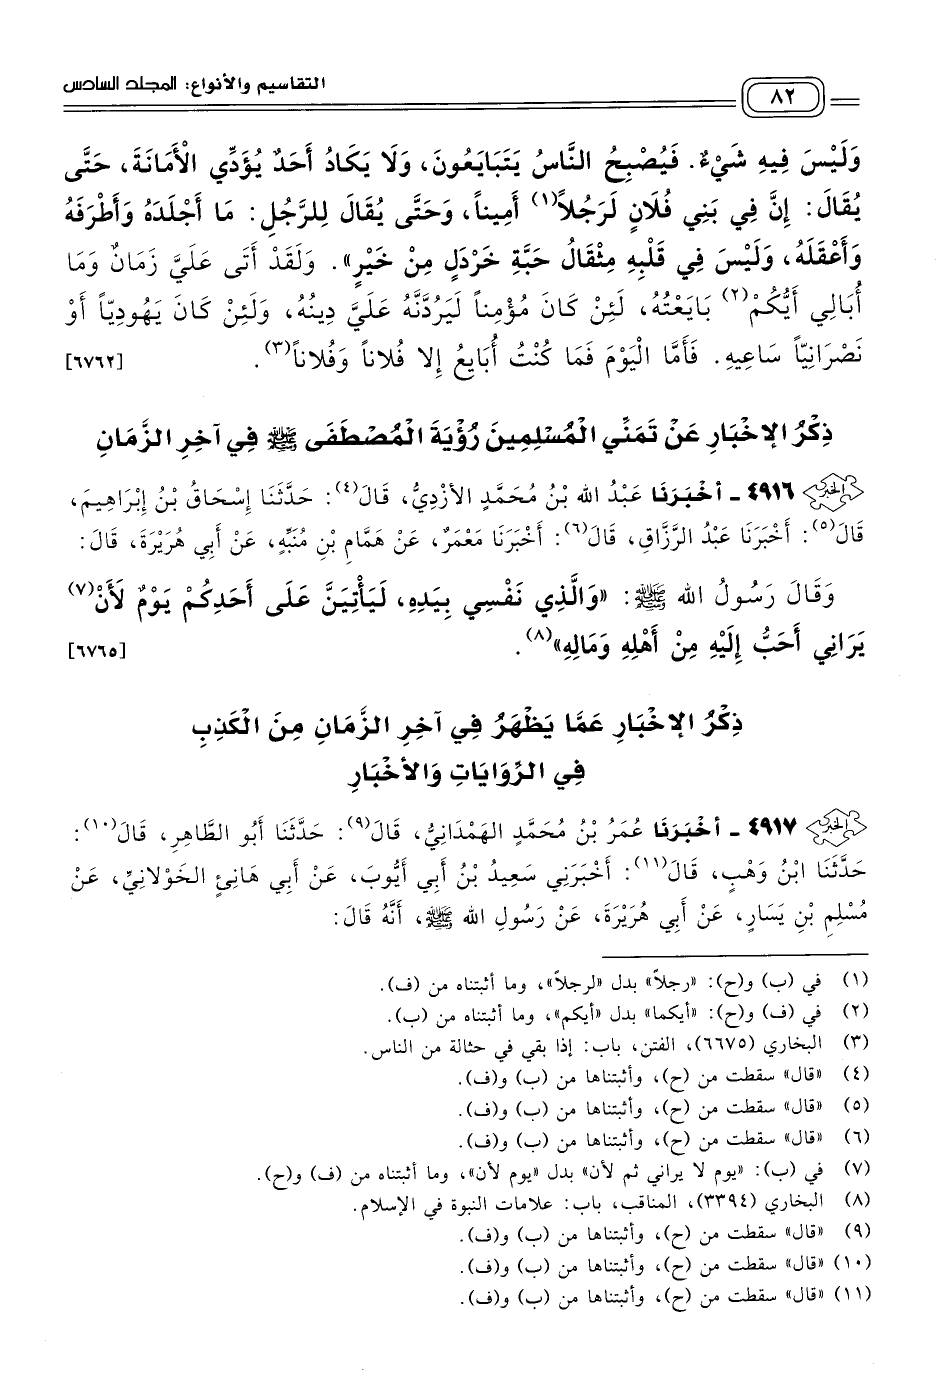 التقاسيم والأنواع: المجلد السادس
٨٢
وَلَيْسَ فِيهِ شَيْءٌ. فَيُصْبِحُ النَّاسُ يَتَبَايَعُونَ، وَلَا يَكَادُ أَحَدٌ يُؤَدِّي الْأَمَانَةَ، حَتَّى
يُقَالَ: إِنَّ فِي بَنِي فُلَانٍ لَرَجُلاً(١) أَمِيناً، وَحَتَّى يُقَالَ لِلرَّجُلِ: مَا أَجْلَدَهُ وَأَظْرَفَهُ
وَأَعْقَلَهُ، وَلَيْسَ فِي قَلْبِهِ مِثْقَالُ حَبَّةِ خَرْدَلٍ مِنْ خَيْرٍ». وَلَقَدْ أَتَى عَلَيَّ زَمَانٌ وَمَا
أُبَالِي أَيُّكُمْ(٢) بَايَعْتُهُ، لَئِنْ كَانَ مُؤْمِناً لَيَرُدَّنَّهُ عَلَيَّ دِينُهُ، وَلَئِنْ كَانَ يَهُودِيّاً أَوْ
نَصْرَانِيّاً سَاعِيهِ. فَأَمَّا الْيَوْمَ فَمَا كُنْتُ أُبَايِعُ إِلا فُلَاناً وَفُلَاناً(٣). [٦٧٦٢]
ذِكْرُ الإخْبَارِ عَنْ تَمَنِّي الْمُسْلِمِينَ رُؤْيَةَ الْمُصْطَفَى ﷺ فِي آخِرِ الزَّمَانِ
٤٩١٦ - أَخْبَرَنَا عَبْدُ الله بْنُ مُحَمَّدٍ الأَزْدِيُّ، قَالَ(٤): حَدَّثَنَا إِسْحَاقُ بْنُ إِبْرَاهِيمَ،
قَالَ(٥): أَخْبَرَنَا عَبْدُ الرَّزَّاقِ، قَالَ(٦): أَخْبَرَنَا مَعْمَرٌ، عَنْ هَمَّامِ بْنِ مُنَبِّهٍ، عَنْ أَبِي هُرَيْرَةَ، قَالَ:
وَقَالَ رَسُولُ الله ﷺ: «وَالَّذِي نَفْسِي بِيَدِهِ، لَيَأْتِيَنَّ عَلَى أَحَدِكُمْ يَوْمٌ لَأَنْ(٧)
يَرَانِي أَحَبُّ إِلَيْهِ مِنْ أَهْلِهِ وَمَالِهِ»(٨). [٦٧٦٥]
ذِكْرُ الإخْبَارِ عَمَّا يَظْهَرُ فِي آخِرِ الزَّمَانِ مِنَ الْكَذِبِ
فِي الرِّوَايَاتِ وَالأخْبَارِ
٤٩١٧ - أَخْبَرَنَا عُمَرُ بْنُ مُحَمَّدٍ الهَمْدَانِيُّ، قَالَ(٩): حَدَّثَنَا أَبُو الطَّاهِرِ، قَالَ(١٠):
حَدَّثَنَا ابْنُ وَهْبٍ، قَالَ(١١): أَخْبَرَنِي سَعِيدُ بْنُ أَبِي أَيُّوبَ، عَنْ أَبِي هَانِئٍ الخَوْلَانِيِّ، عَنْ
مُسْلِمِ بْنِ يَسَارٍ، عَنْ أَبِي هُرَيْرَةَ، عَنْ رَسُولِ الله ﷺ، أَنَّهُ قَالَ:
(١) في (ب) و(ح): «رجلاً» بدل «لرجلاً»، وما أثبتناه من (ف).
(٢) في (ف) و(ح): «أيكما» بدل «أيكم»، وما أثبتناه من (ب).
(٣) البخاري (٦٦٧٥)، الفتن، باب: إذا بقي في حثالة من الناس.
(٤) «قال» سقطت من (ح)، وأثبتناها من (ب) و(ف).
(٥) «قال» سقطت من (ح)، وأثبتناها من (ب) و(ف).
(٦) «قال» سقطت من (ح)، وأثبتناها من (ب) و(ف).
(٧) في (ب): «يوم لا يراني ثم لأن» بدل «يوم لأن»، وما أثبتناه من (ف) و(ح).
(٨) البخاري (٣٣٩٤)، المناقب، باب: علامات النبوة في الإسلام.
(٩) «قال» سقطت من (ح)، وأثبتناها من (ب) و(ف).
(١٠) «قال» سقطت من (ح)، وأثبتناها من (ب) و(ف).
(١١) «قال» سقطت من (ح)، وأثبتناها من (ب) و(ف).